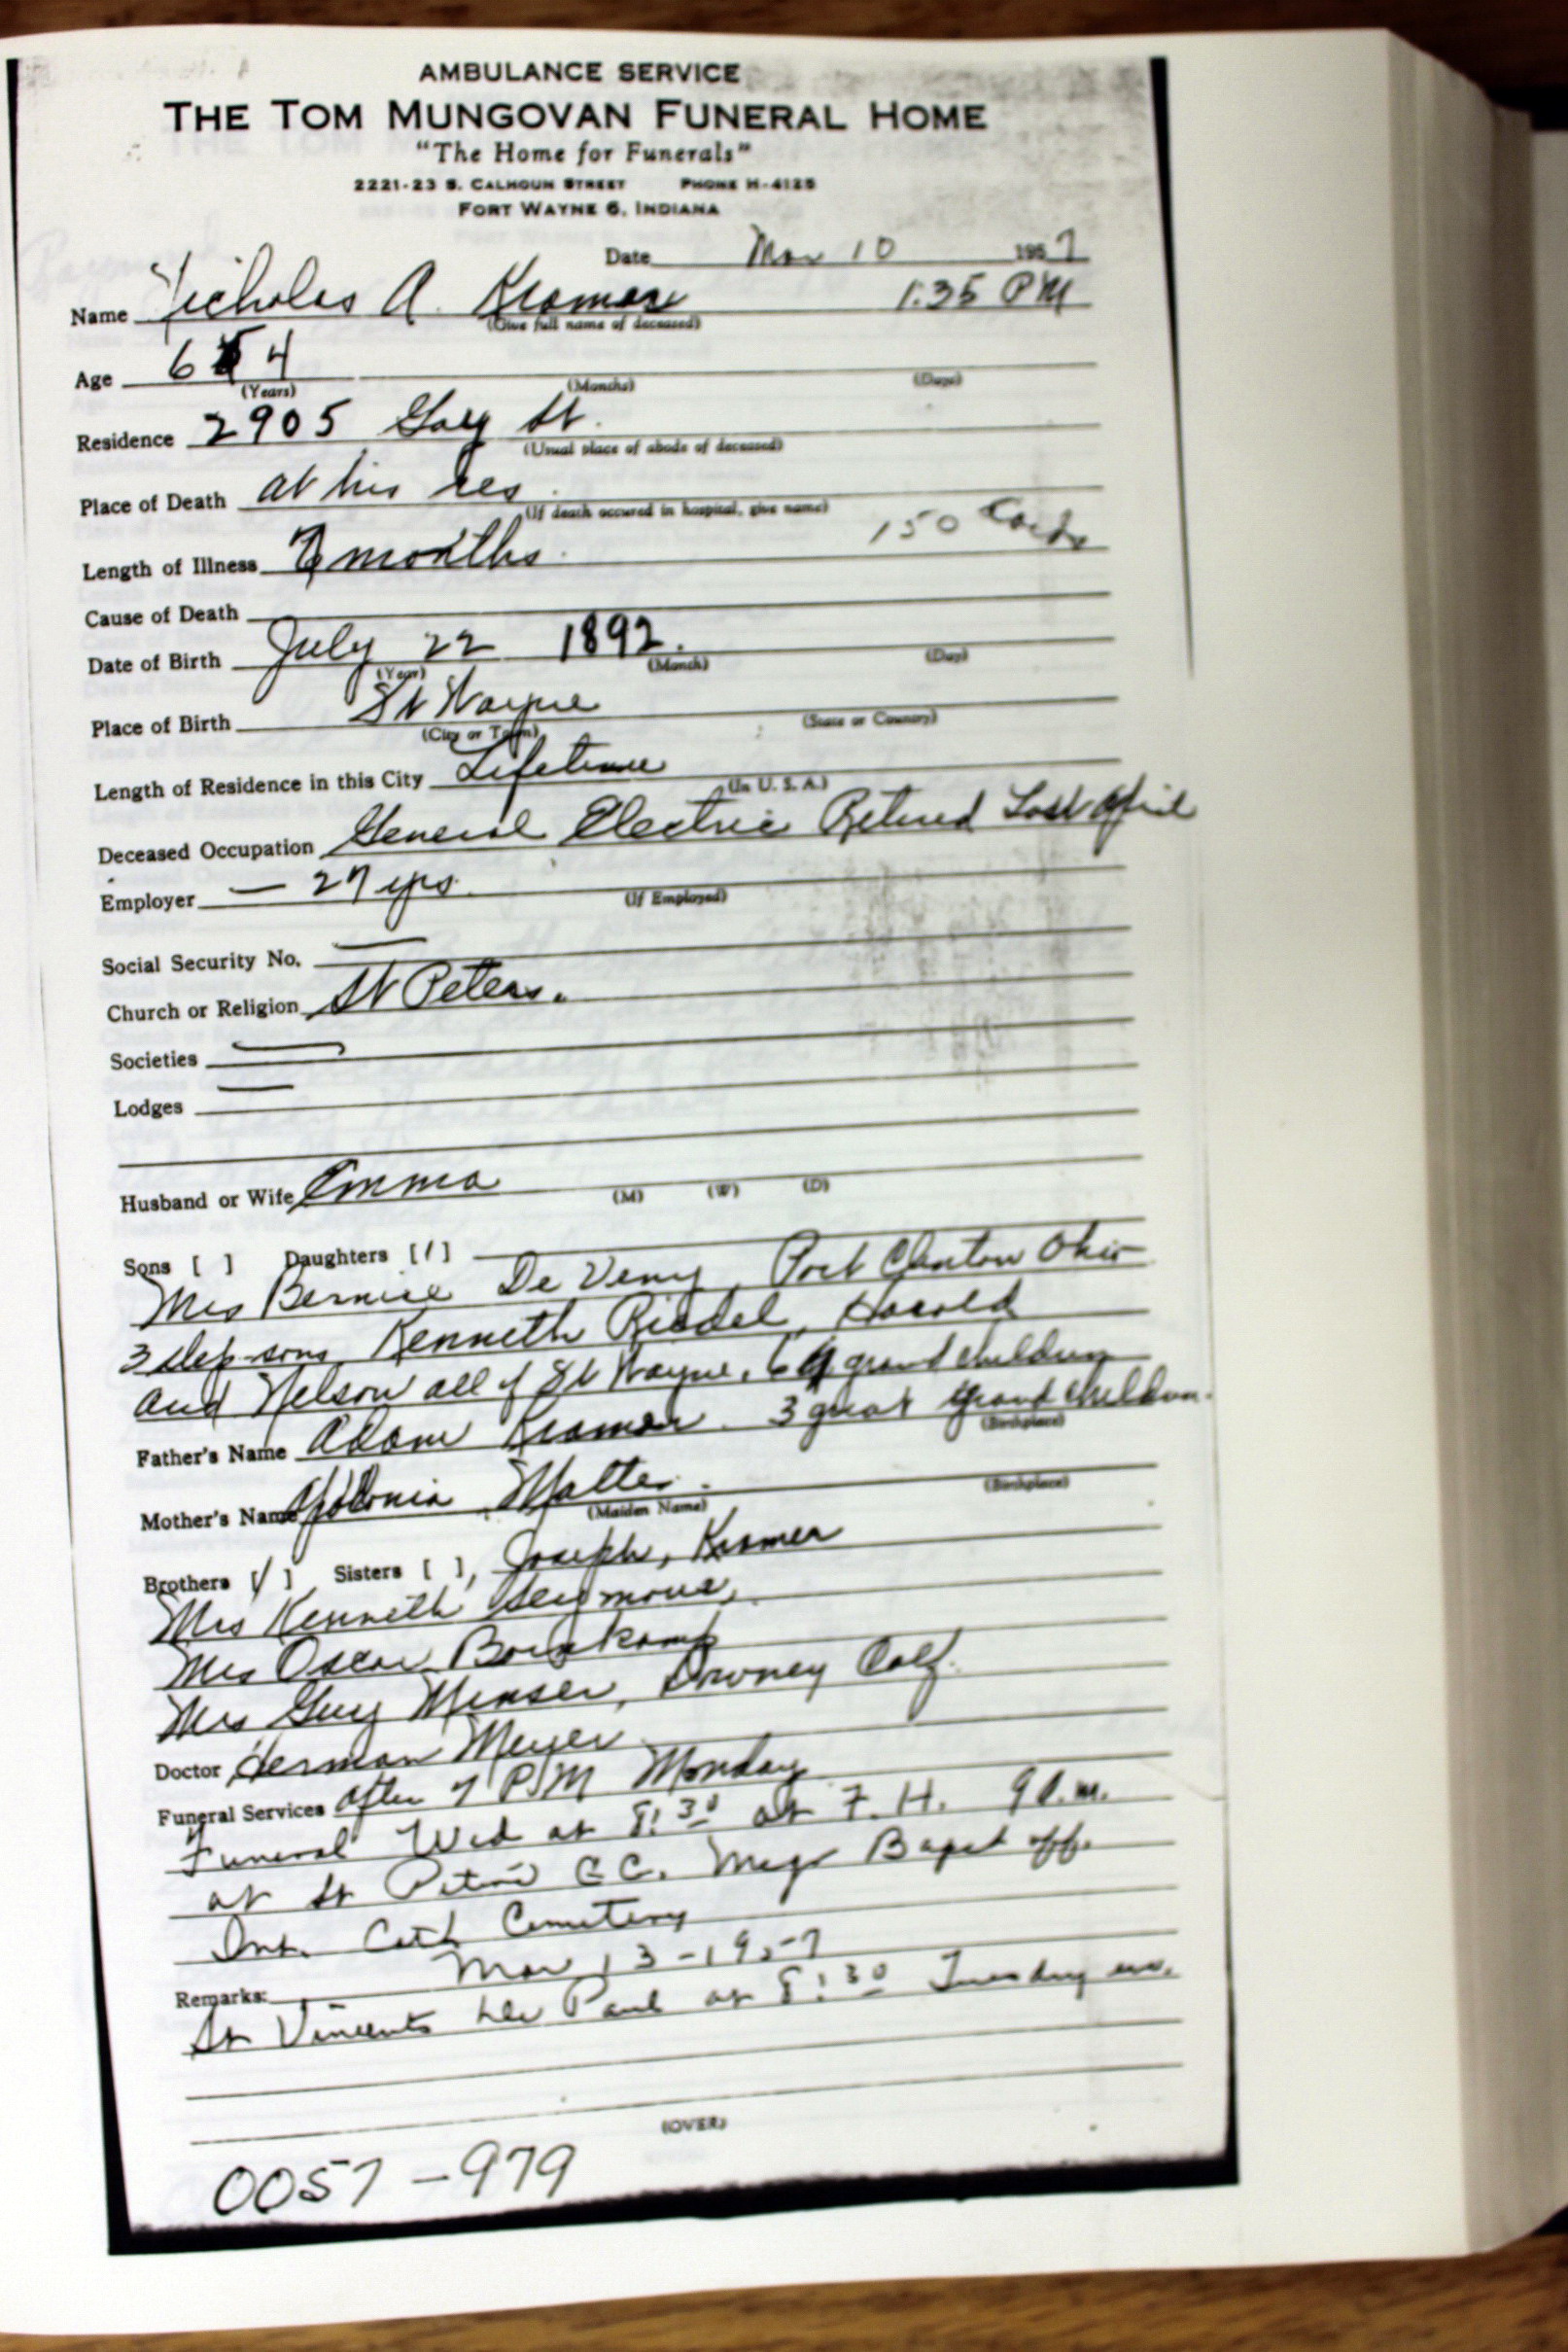 AMBULANCE SERVICE
THE TOM MUNGOVAN FUNERAL HOME
"The Home for Funerals"
2221-23 S. CALHOUN STREET PHONE H-4125
FORT WAYNE 6, INDIANA
Date Mar 10 1957
Name Nicholas A. Kramer 1:35 PM
(Give full name of deceased)
Age 64
(Years) (Months) (Days)
Residence 2905 Gay St.
(Usual place of abode of deceased)
Place of Death at his res.
(If death occured in hospital, give name)
150 Cards
Length of Illness months.
Cause of Death
Date of Birth July 22 1892.
(Year) (Month) (Day)
Place of Birth Ft Wayne
(City or Town) (State or Country)
Length of Residence in this City Lifetime
(In U. S. A.)
Deceased Occupation General Electric Retired Last April
Employer — 27 yrs.
(If Employed)
Social Security No. —
Church or Religion St Peters.
Societies —
Lodges —
Husband or Wife Emma (M) (W) (D)
Sons [ ] Daughters [/]
Mrs Bernice De Veny, Port Clinton Ohio
3 step-sons Kenneth Riedel, Harold
and Nelson all of Ft Wayne. grand children
3 great grand children.
Father's Name Adam Kramer
(Birthplace)
Mother's Name Apolonia Malter.
(Maiden Name) (Birthplace)
Brothers [/] Sisters [ ], Joseph, Kramer
Mrs Kenneth Seymour,
Mrs Oscar Bornkamp
Mrs Guy Minser, Downey Calf.
Doctor Herman Meyer
Funeral Services after 7 PM Monday
Funeral Wed at 8:30 at F. H. 9 A.M.
at St Peter's C.C. Msgr Bapst off.
Int. Cath Cemetery
Mar 13-1957
Remarks:
St Vincents de Paul at 8:30 Tuesday eve.
(OVER)
0057-979